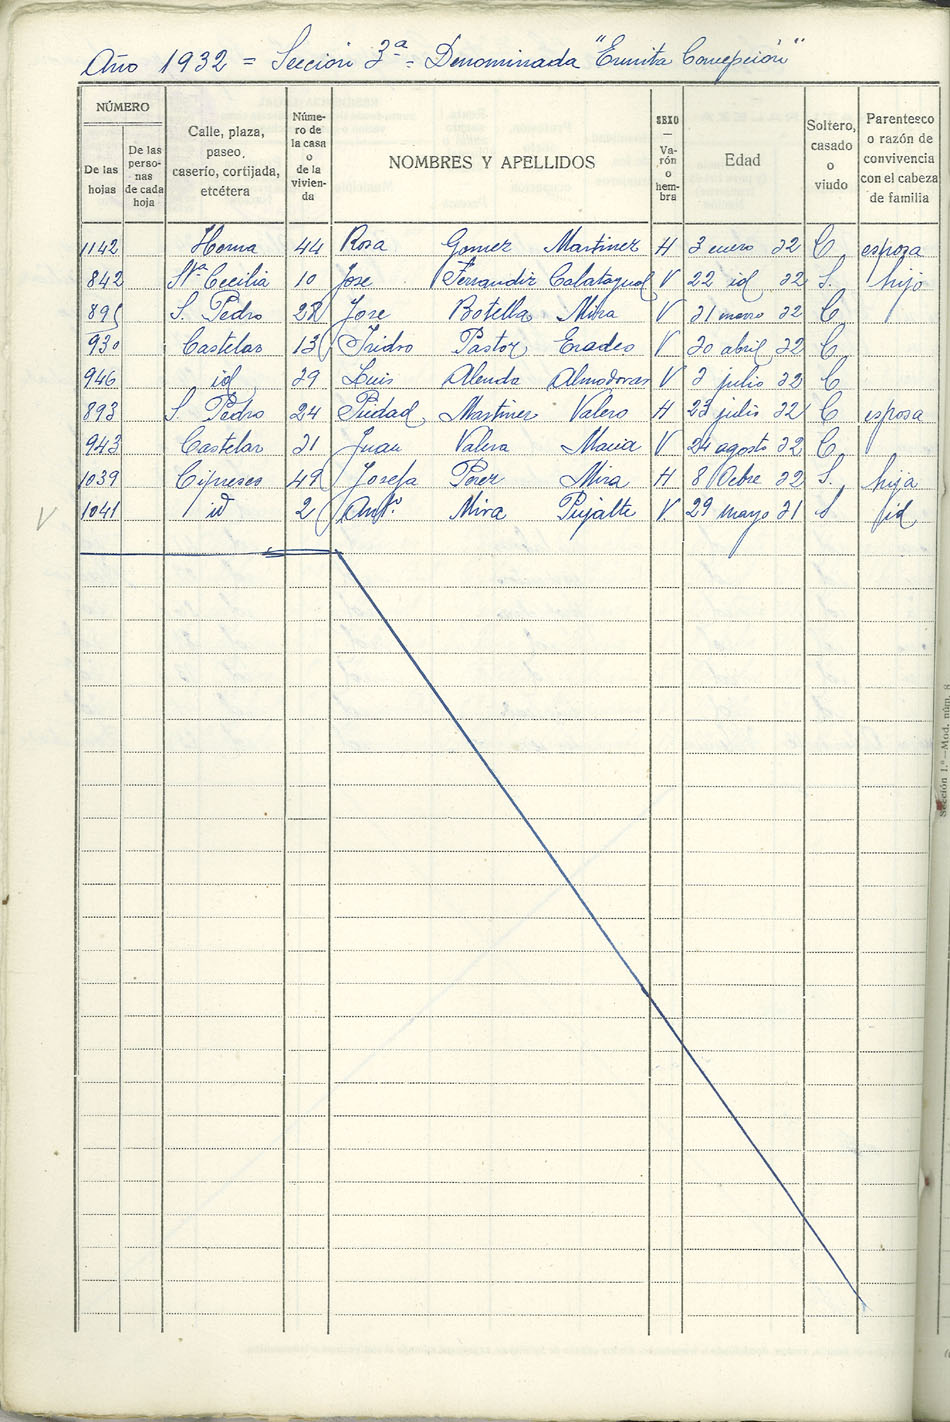 Año 1932 = Sección 3ª = Denominada "Ermita Concepción"
NÚMERO
De las hojas
De las personas de cada hoja
Calle, plaza, paseo, caserío, cortijada, etcétera
Número de la casa o de la vivienda
NOMBRES Y APELLIDOS
SEXO — Varón o hembra
Edad
Soltero, casado o viudo
Parentesco o razón de convivencia con el cabeza de familia
1142 44 Rosa Gomez Martinez H 3 enero 32 C esposa
842 Sta Cecilia 10 Jose Ferrandiz Calatayud V 22 id 32 S. hijo
895 S. Pedro 28 Jose Botella Mira V 31 marzo 32 C
930 Castelar 13 Isidro Pastor V 30 abril 32 C
946 id 39 Luis Alenda Almodovar V 3 julio 32 C
893 S Pedro 24 Piedad Martinez Valero H 23 julio 32 C esposa
943 Castelar 31 Juan Valera Macia V 24 agosto 32 C
1039 Cipreses 49 Josefa Perez Mira H 8 Octbre 32 S. hija
V 1041 id 2 Antº Mira Pujalte V. 29 mayo 31 S id
Sección 1.ª—Mod. núm. 8